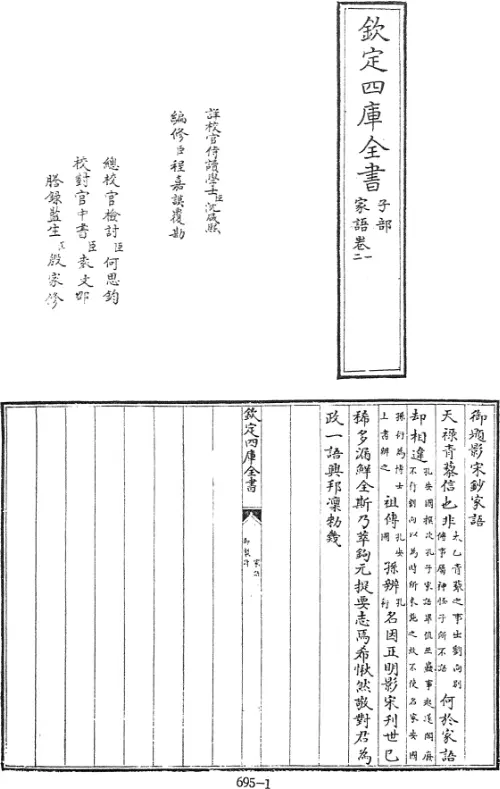 欽定四庫全書
子部
家語卷一
二
詳校官侍讀學士臣沈咸熙
編修臣程嘉謨覆勘
總校官檢討臣何思鈞
校對官中書臣袁文邵
謄錄監生臣殷家修
御題影宋鈔家語
天祿青藜信也非太乙青藜之事出劉向別傳事屬神怪子所不語何於家語
却相違孔安國撰次孔子家語畢值巫蠱事起遂閣廢不行劉向以為時所未施之故不使名家安國
孫衍為博士上書辨之祖傳孔安國孫辨孔衍名因正明影宋刊世已
稀多漏鮮全斯乃萃鉤元提要志焉希愀然敬對君為
政一語興邦凜勅幾
欽定四庫全書
家語
695-1